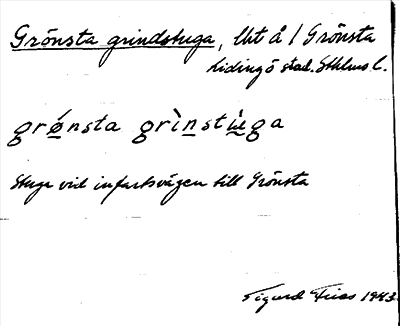 Grönsta grindstuga, lht å / Grönsta
Lidingö stad. Sthlms l.
grǿnsta grìnstùga
Stuga vid infartsvägen till Grönsta
Sigurd Fries 1943